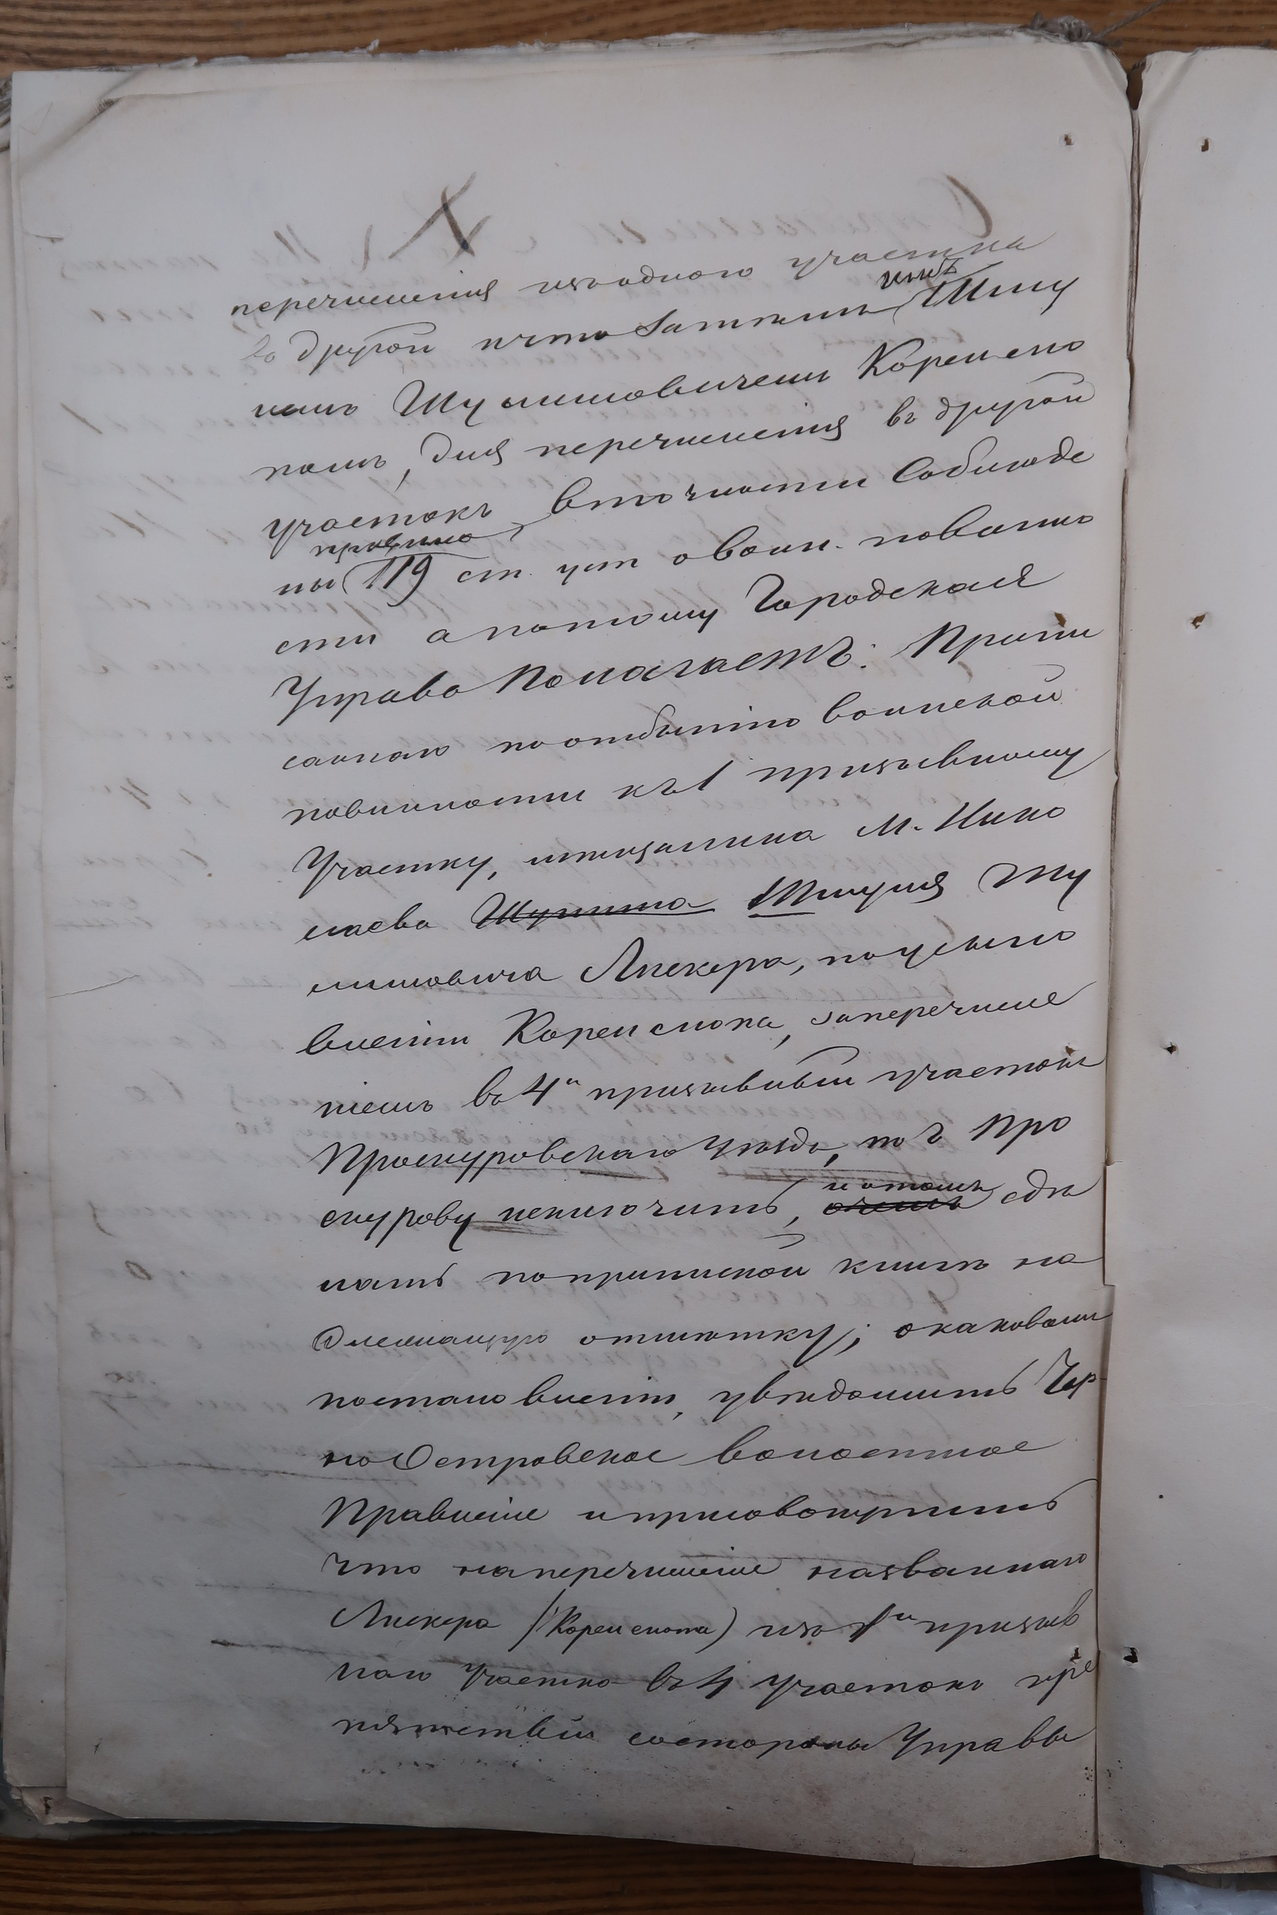 перечисленія изъ одного участка
въ другой и что затѣмъ имъ Шму
лемъ Шулимовичемъ Коренсно
помъ, для перечисленія въ другой
участокъ, въ точности соблюде
ны правила 119 ст. уст. о воин. повинно
сти а потому Городская
Управа Полагаетъ: Припи
саннаго по отбытію воинской
повинности къ 1 призывному
Участку, мѣщанина М. Нико
лаева Шулима Шмуля Шу
лимовича Лискера, по усыно
вленію Коренснопа, за перечисле
ніемъ въ 4й призывный участокъ
Проскуровскаго Уѣзда, по г. Про
скурову исключить, и о томъ сдѣ
лать по приписной книгѣ на
длежащую отмѣтку; о каковомъ
постановленіи, увѣдомить Чер
но Островское волостное
Правленіе и присовокупить
что на перечисленіе названнаго
Лискера (Коренснопа) изъ 1го призыв
наго Участка въ 4 Участокъ пре
пятствій со стороны Управы